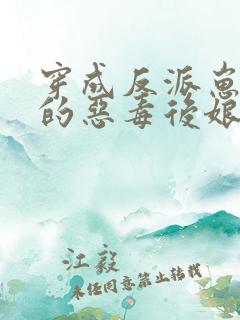 穿成反派崽
的惡毒後娘
江毅
未经同意禁止转载